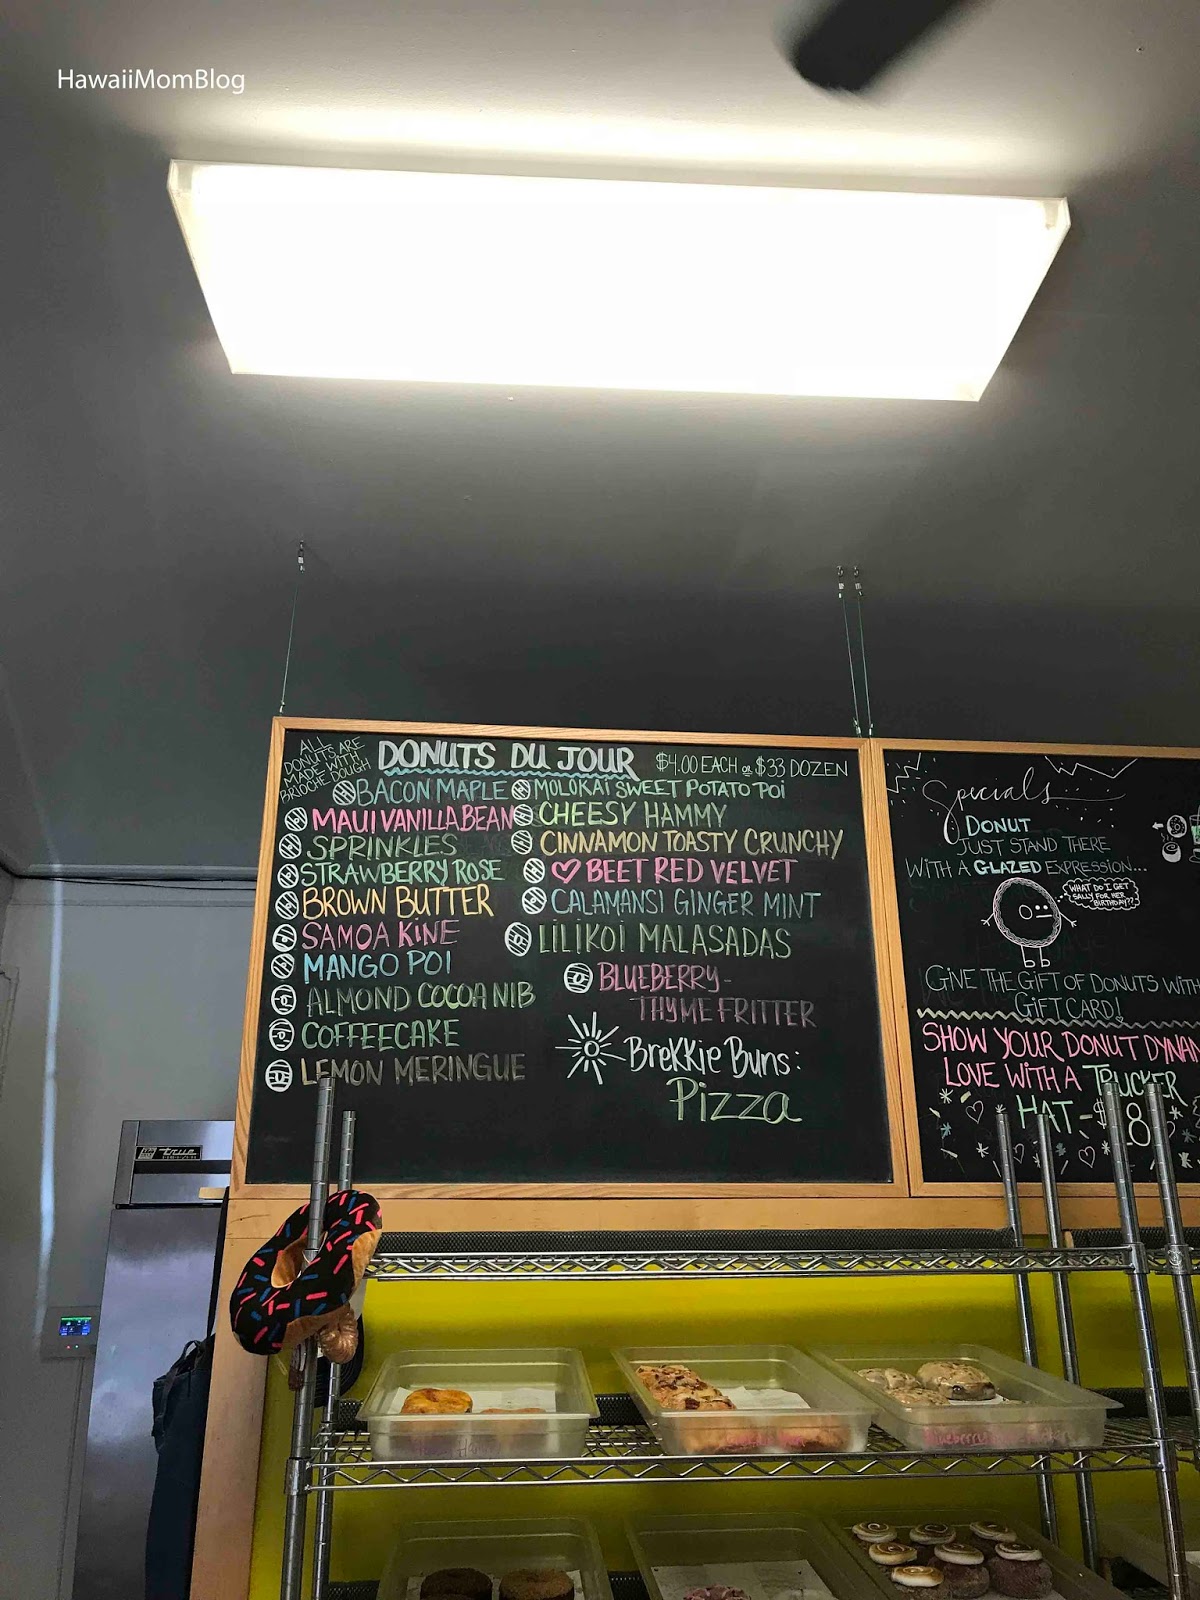 HawaiiMomBlog
ALL
DONUTS ARE
MADE WITH
BRIOCHE DOUGH
DONUTS DU JOUR
$4.00 EACH or $33 DOZEN
BACON MAPLE
MAUI VANILLA BEAN
SPRINKLES
STRAWBERRY ROSE
BROWN BUTTER
SAMOA KINE
MANGO POI
ALMOND COCOA NIB
COFFEECAKE
LEMON MERINGUE
MOLOKAI SWEET POTATO POI
CHEESY HAMMY
CINNAMON TOASTY CRUNCHY
BEET RED VELVET
CALAMANSI GINGER MINT
LILIKOI MALASADAS
BLUEBERRY-
THYME FRITTER
BREKKIE BUNS:
Pizza
Specials
DONUT
JUST STAND THERE
WITH A GLAZED EXPRESSION...
WHAT DO I GET
SALLY FOR HER
BIRTHDAY??
GIVE THE GIFT OF DONUTS WITH
GIFT CARD!
SHOW YOUR DONUT DYNAM
LOVE WITH A TRUCKER
HAT - $ 8
true
Blueberry